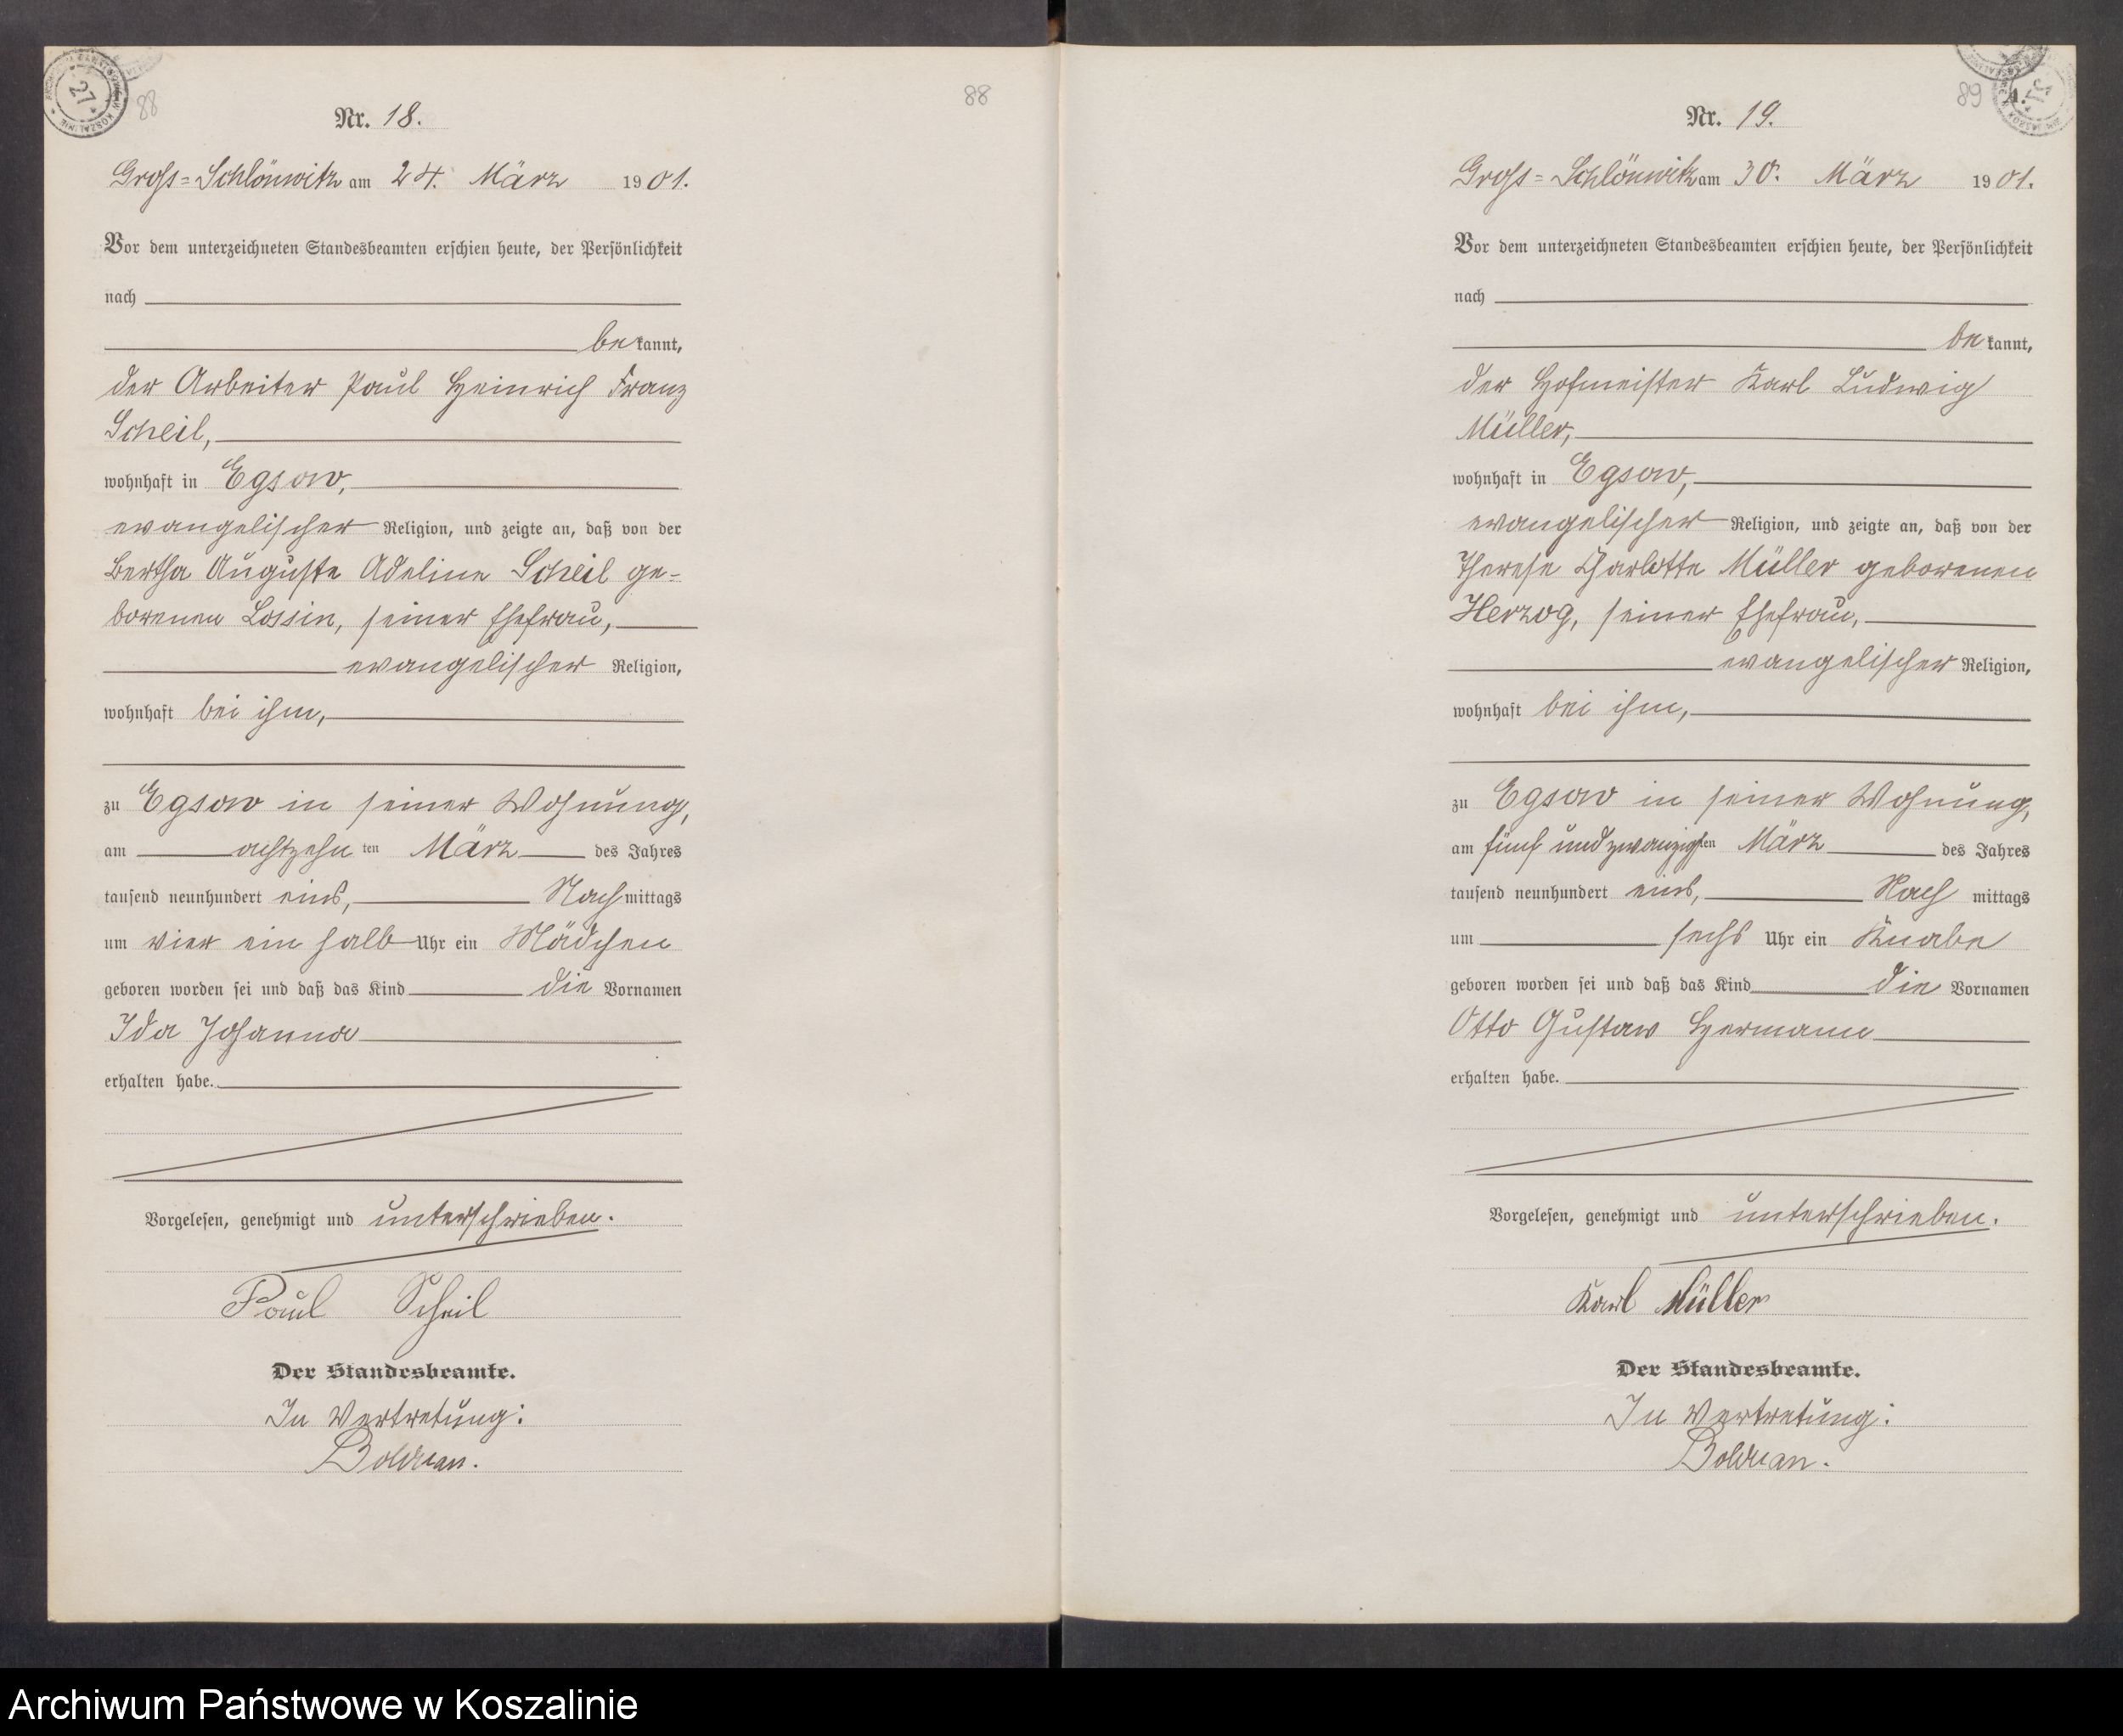 88
Nr. 18.
Gross=Schlönwitz am 24. März 1901.
Vor dem unterzeichneten Standesbeamten erschien heute, der Persönlichkeit
nach
bekannt,
der Arbeiter Paul Heinrich Franz
Scheil,
wohnhaft in Egsow,
evangelischer Religion, und zeigte an, daß von der
Bertha Auguste Adeline Scheil ge=
borenen Lossin, seiner Ehefrau,
evangelischer Religion,
wohnhaft bei ihm,
zu Egsow in seiner Wohnung,
am achtzehnten März des Jahres
tausend neunhundert eins, Nachmittags
um vier ein halb Uhr ein Mädchen
geboren worden sei und daß das Kind die Vornamen
Ida Johanna
erhalten habe.
Vorgelesen, genehmigt und unterschrieben.
Paul Scheil
Der Standesbeamte.
In Vertretung:
Bolduan.
88
89
Nr. 19.
Gross=Schlönwitz am 30. März 1901.
Vor dem unterzeichneten Standesbeamten erschien heute, der Persönlichkeit
nach
bekannt,
der Hofmeister Karl Ludwig
Müller,
wohnhaft in Egsow,
evangelischer Religion, und zeigte an, daß von der
Therese Charlotte Müller geborenen
Herzog, seiner Ehefrau,
evangelischer Religion,
wohnhaft bei ihm,
zu Egsow in seiner Wohnung,
am fünf und zwanzigsten März des Jahres
tausend neunhundert eins, Nach mittags
um sechs Uhr ein Knabe
geboren worden sei und daß das Kind die Vornamen
Otto Gustav Hermann
erhalten habe.
Vorgelesen, genehmigt und unterschrieben.
Karl Müller
Der Standesbeamte.
In Vertretung:
Bolduan.
Archiwum Państwowe w Koszalinie